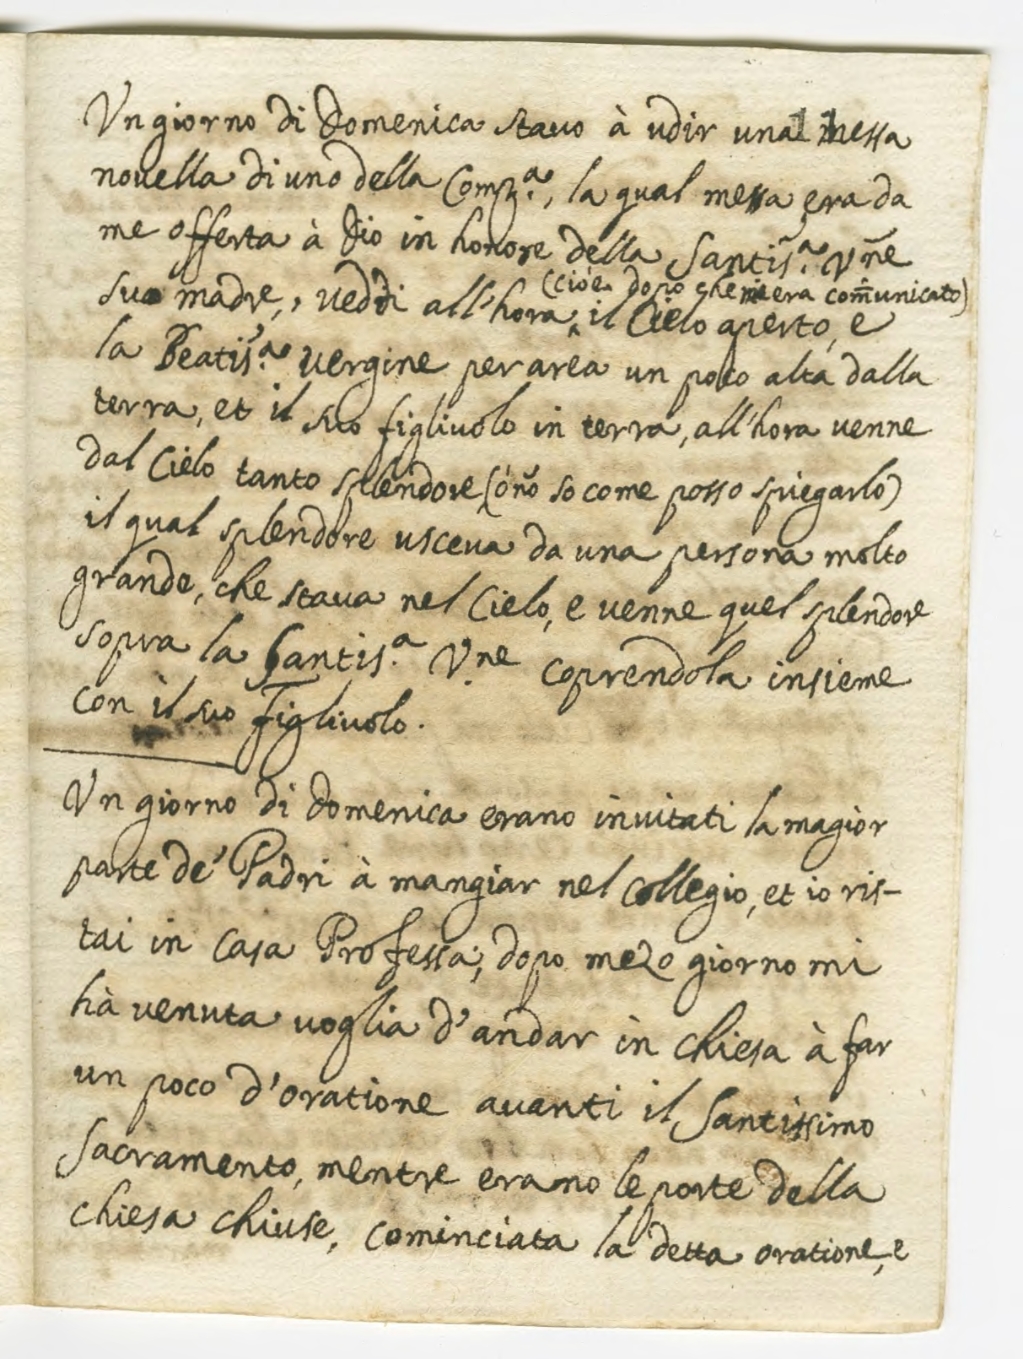 Vn giorno di Domenica stauo à udir una messa
nouella di uno della Comp.ª, la qual messa era da
me offerta à Dio in honore della Santis.ª Vn̄e
sua madre, ueddi all'hora
(cioè dopo che mi era com̄unicato)
il Cielo aperto, e
la Beatis.ª uergine per area un poco alta dalla
terra, et il suo figliuolo in terra, all'hora uenne
dal Cielo tanto splendore (ò nō so come posso spiegarlo)
il qual splendore usceua da una persona molto
grande, che staua nel Cielo, e uenne quel splendore
sopra la Santis.ª V.ne coprendola insieme
con il suo Figliuolo.
Vn giorno di Domenica erano inuitati la magior
parte de' Padri à mangiar nel Collegio, et io ris-
tai in Casa Professa; dopo mezo giorno mi
hà uenuta uoglia d'andar in chiesa à far
un poco d'oratione auanti il Santissimo
Sacramento, mentre erano le porte della
chiesa chiuse, cominciata la detta oratione, e